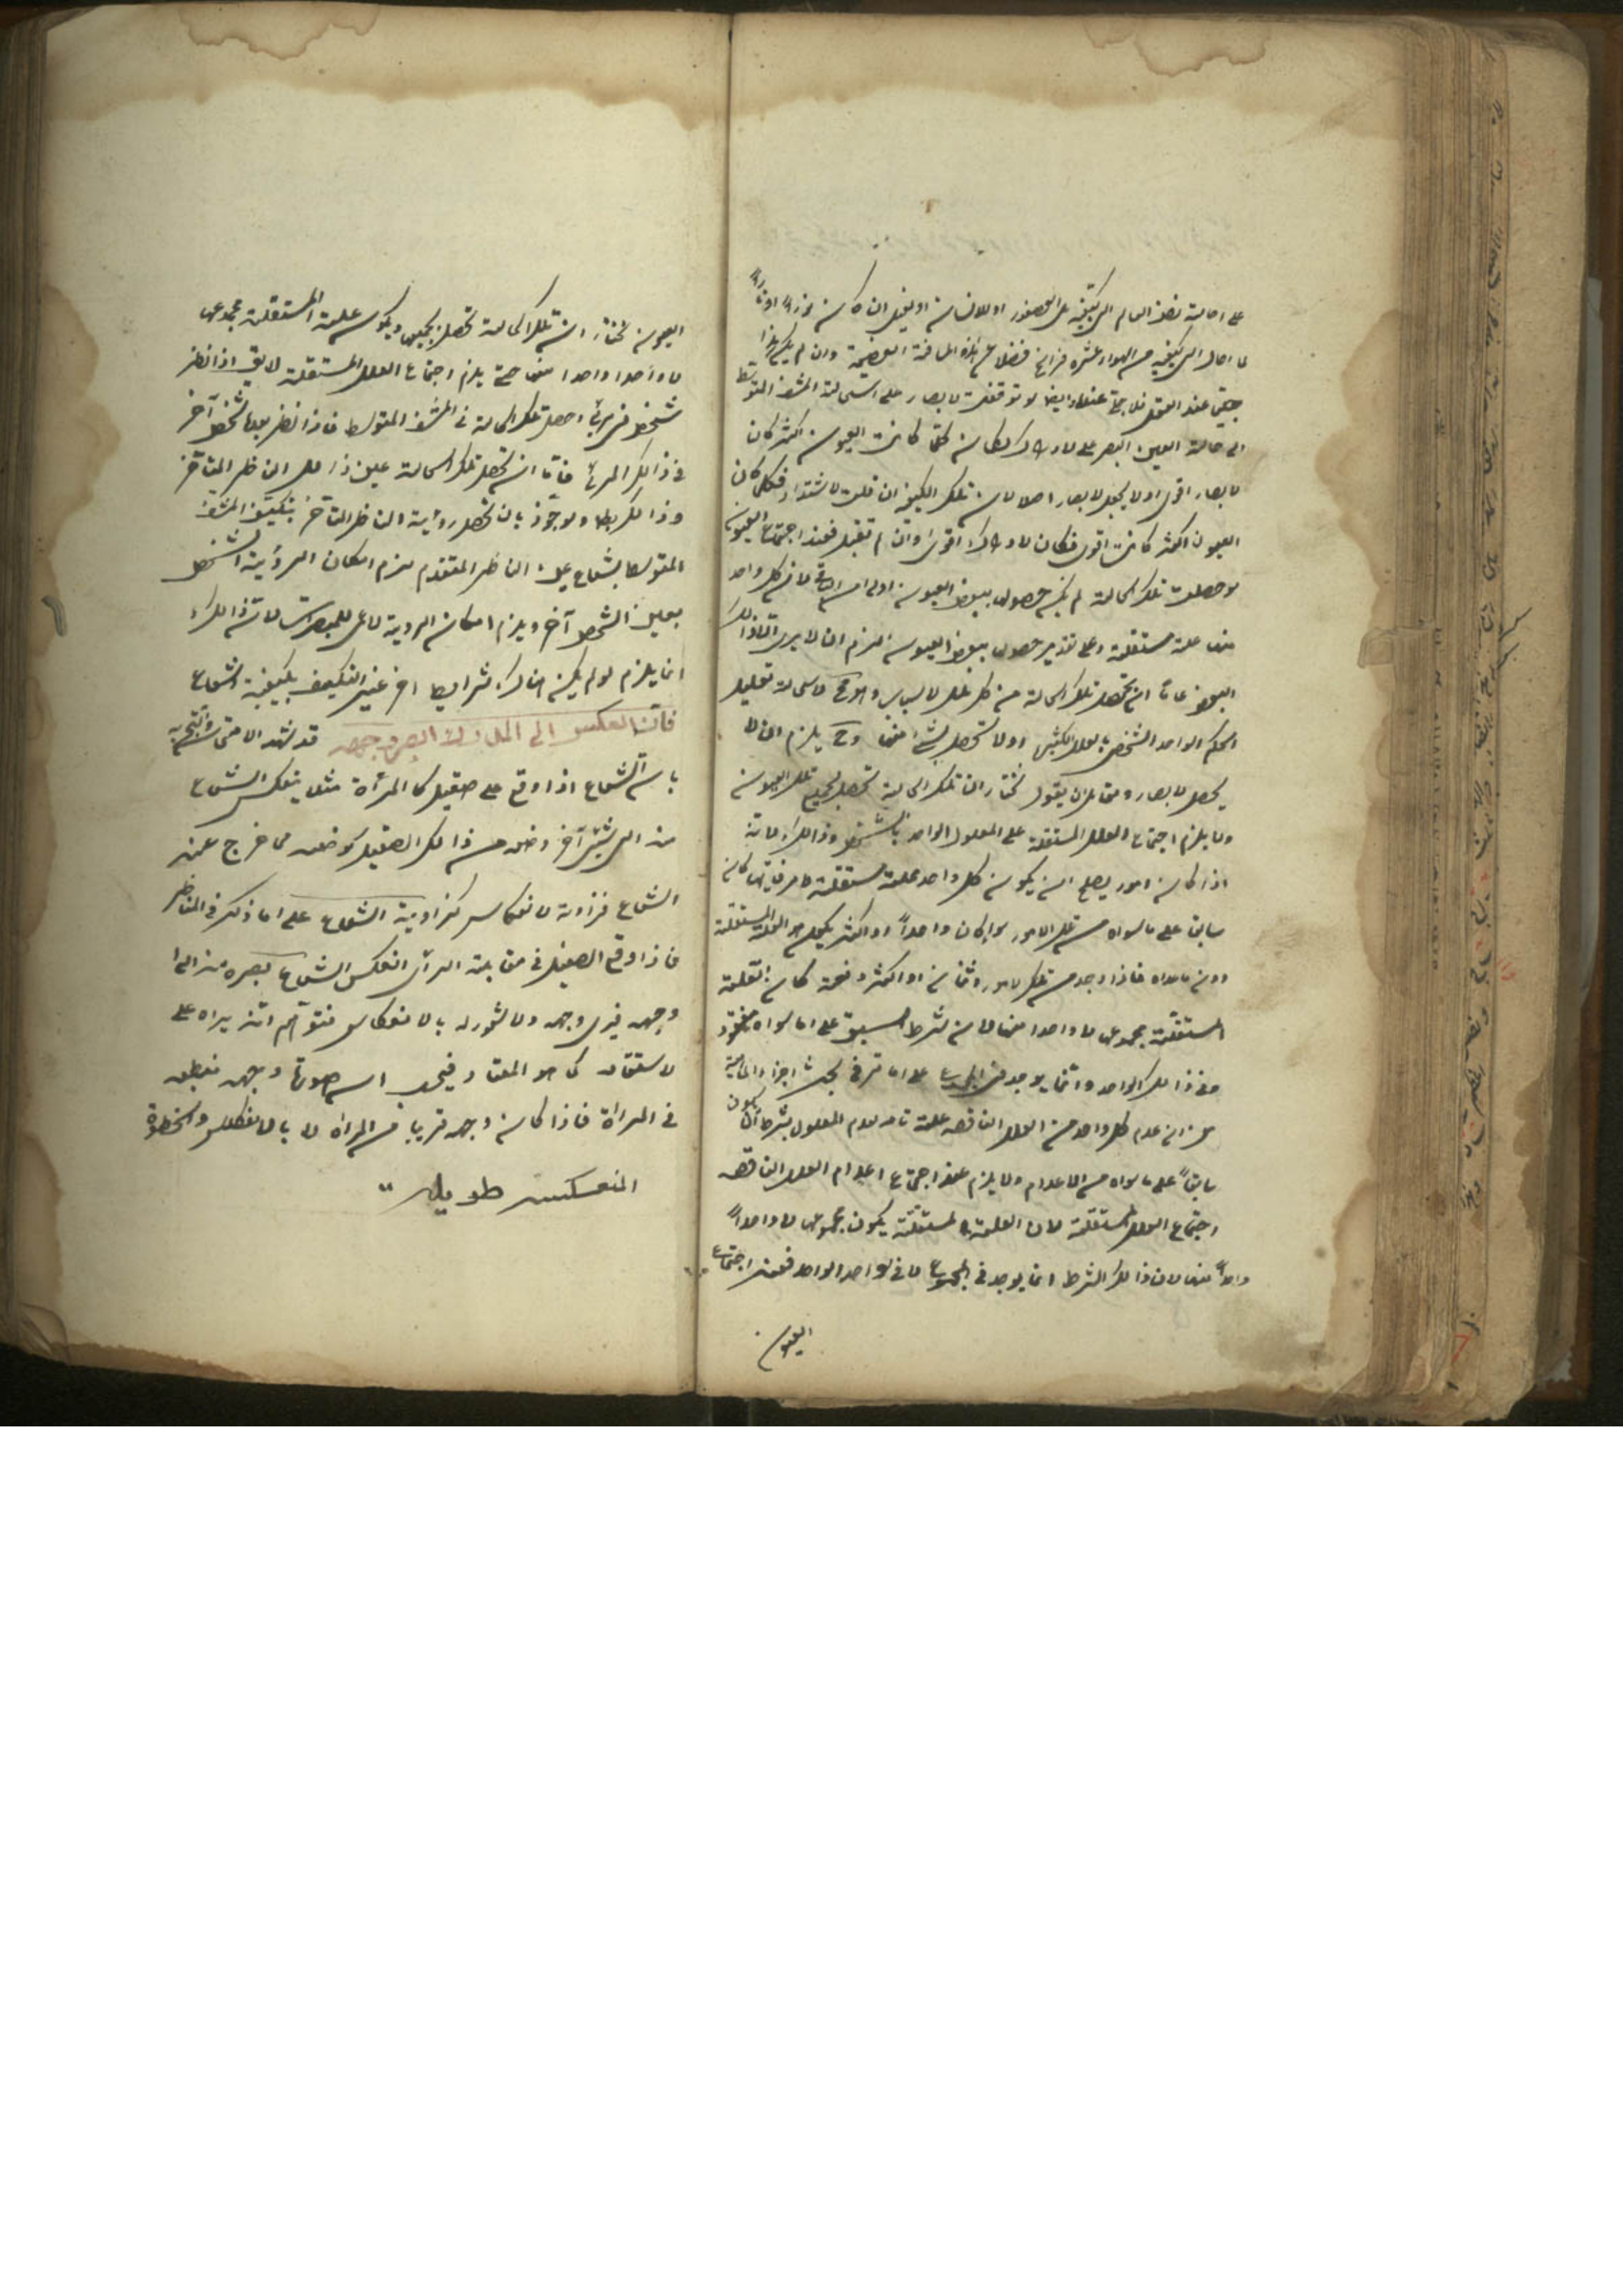 على احالة نصف العالم الى كيفية
ما احال الى كيفيته من الهواء عشرة فراسخ فضلا عن هذه المسافة العظيمة وان لم يكن هذا
جليا عند العقل فلا جلي عنده وايضا لو توقفت الابصار على استحالة المشف المتوسط
الى حالة العين البصر على الادراك لكان كلما كانت العيون اكثر كان
الابصار اقوى اولا يحصل الابصار اصلا لان تلك الكيفية ان قبلت الاشتداد فكلما كان
العيون اكثر كانت اقوى فكان الادراك اقوى وان لم تقبل فعند اجتماع العيون
لو حصلت تلك الحالة لم يكن حصولها ببعض العيون اولى من الباقي لان كل واحد
منها علة مستقلة وعلى تقدير حصولها ببعض العيون لزم ان لا يرى الا ذلك
العيون فاما ان تحصل تلك الحالة من كل تلك الاسباب وهو مح لاستحالة تعليل
الحكم الواحد الشخصي بالعلل الكثيرة اولا تحصل بشئ منها وح يلزم ان لا
يحصل الابصار ولقائل ان يقول نختار ان تلك الحالة تحصل بجميع تلك العيون
ولا يلزم اجتماع العلل المستقلة على المعلول الواحد بالشخص وذلك لانه
اذا كان امور يصلح ان يكون كل واحد علة مستقلة لامر فايها كان
سابقا على ما سواه من تلك الامور سواء كان واحدا او اكثر يكون هو العلة المستقلة
دون ما عداه فاذا وجد من تلك الامور اثنان او اكثر دفعة كان العلة
المستقلة مجموعها لا واحدا منها لان شرط السبق على ما سواه مفقود
في ذلك الواحد وانما يوجد في المجموع على ما مر في بحث اجزاء الماهية
من ان عدم كل واحد من العلل الناقصة علة تامة لعدم المعلول بشرط ان يكون
سابقا على ما سواه من الاعدام ولا يلزم عند اجتماع اعدام العلل الناقصة
اجتماع العلل المستقلة لان العلة المستقلة يكون مجموعها لا واحدا
واحدا منها لان ذلك الشرط انما يوجد في المجموع لا في الواحد الواحد فعند اجتماع
العيون
العيون نختار ان تلك الحالة تحصل بجميعها ويكون علته المستقلة مجموعها
لا واحدا واحدا منها حتى يلزم اجتماع العلل المستقلة لا يق اذا نظر
شخص في مرئي وحصل تلك الحالة في المشف المتوسط فاذا نظر بعده شخص آخر
في ذلك المرئي فاما ان تحصل تلك الحالة عين ذلك الناظر المتأخر
وذلك بط ولو جوز بان تحصل رؤية الناظر المتأخر بتكيف المشف
المتوسط بشعاع عين الناظر المتقدم لزم امكان الرؤية الشخص
بعين الشخص آخر ويلزم امكان الرؤية للاعمى للمبصرات لانه ذلك
انما يلزم لو لم يكن هناك شرائط اخر غير التكيف بكيفية الشعاع
فان انعكس الى المدرك ابصر وجهه قد شهد الامتحان والتجربة
بان الشعاع اذا وقع على صقيل كالمرآة مثلا ينعكس الشعاع
منه الى شئ آخر وضعه من ذلك الصقيل كوضعه مما خرج عنه
الشعاع فزاوية الانعكاس كزاوية الشعاع على ما ذكر في المناظر
فاذا وقع الصقيل في مقابلة الرائي انعكس الشعاع بصره منه الى
وجهه فيرى وجهه ولا شعور له بالانعكاس فتوهم انه يراه على
الاستقامة كما هو المعتاد فيحسب ان صورة وجهه منطبعة
في المرآة فاذا كان وجهه قريبا من المرآة
المنعكسة طويلة